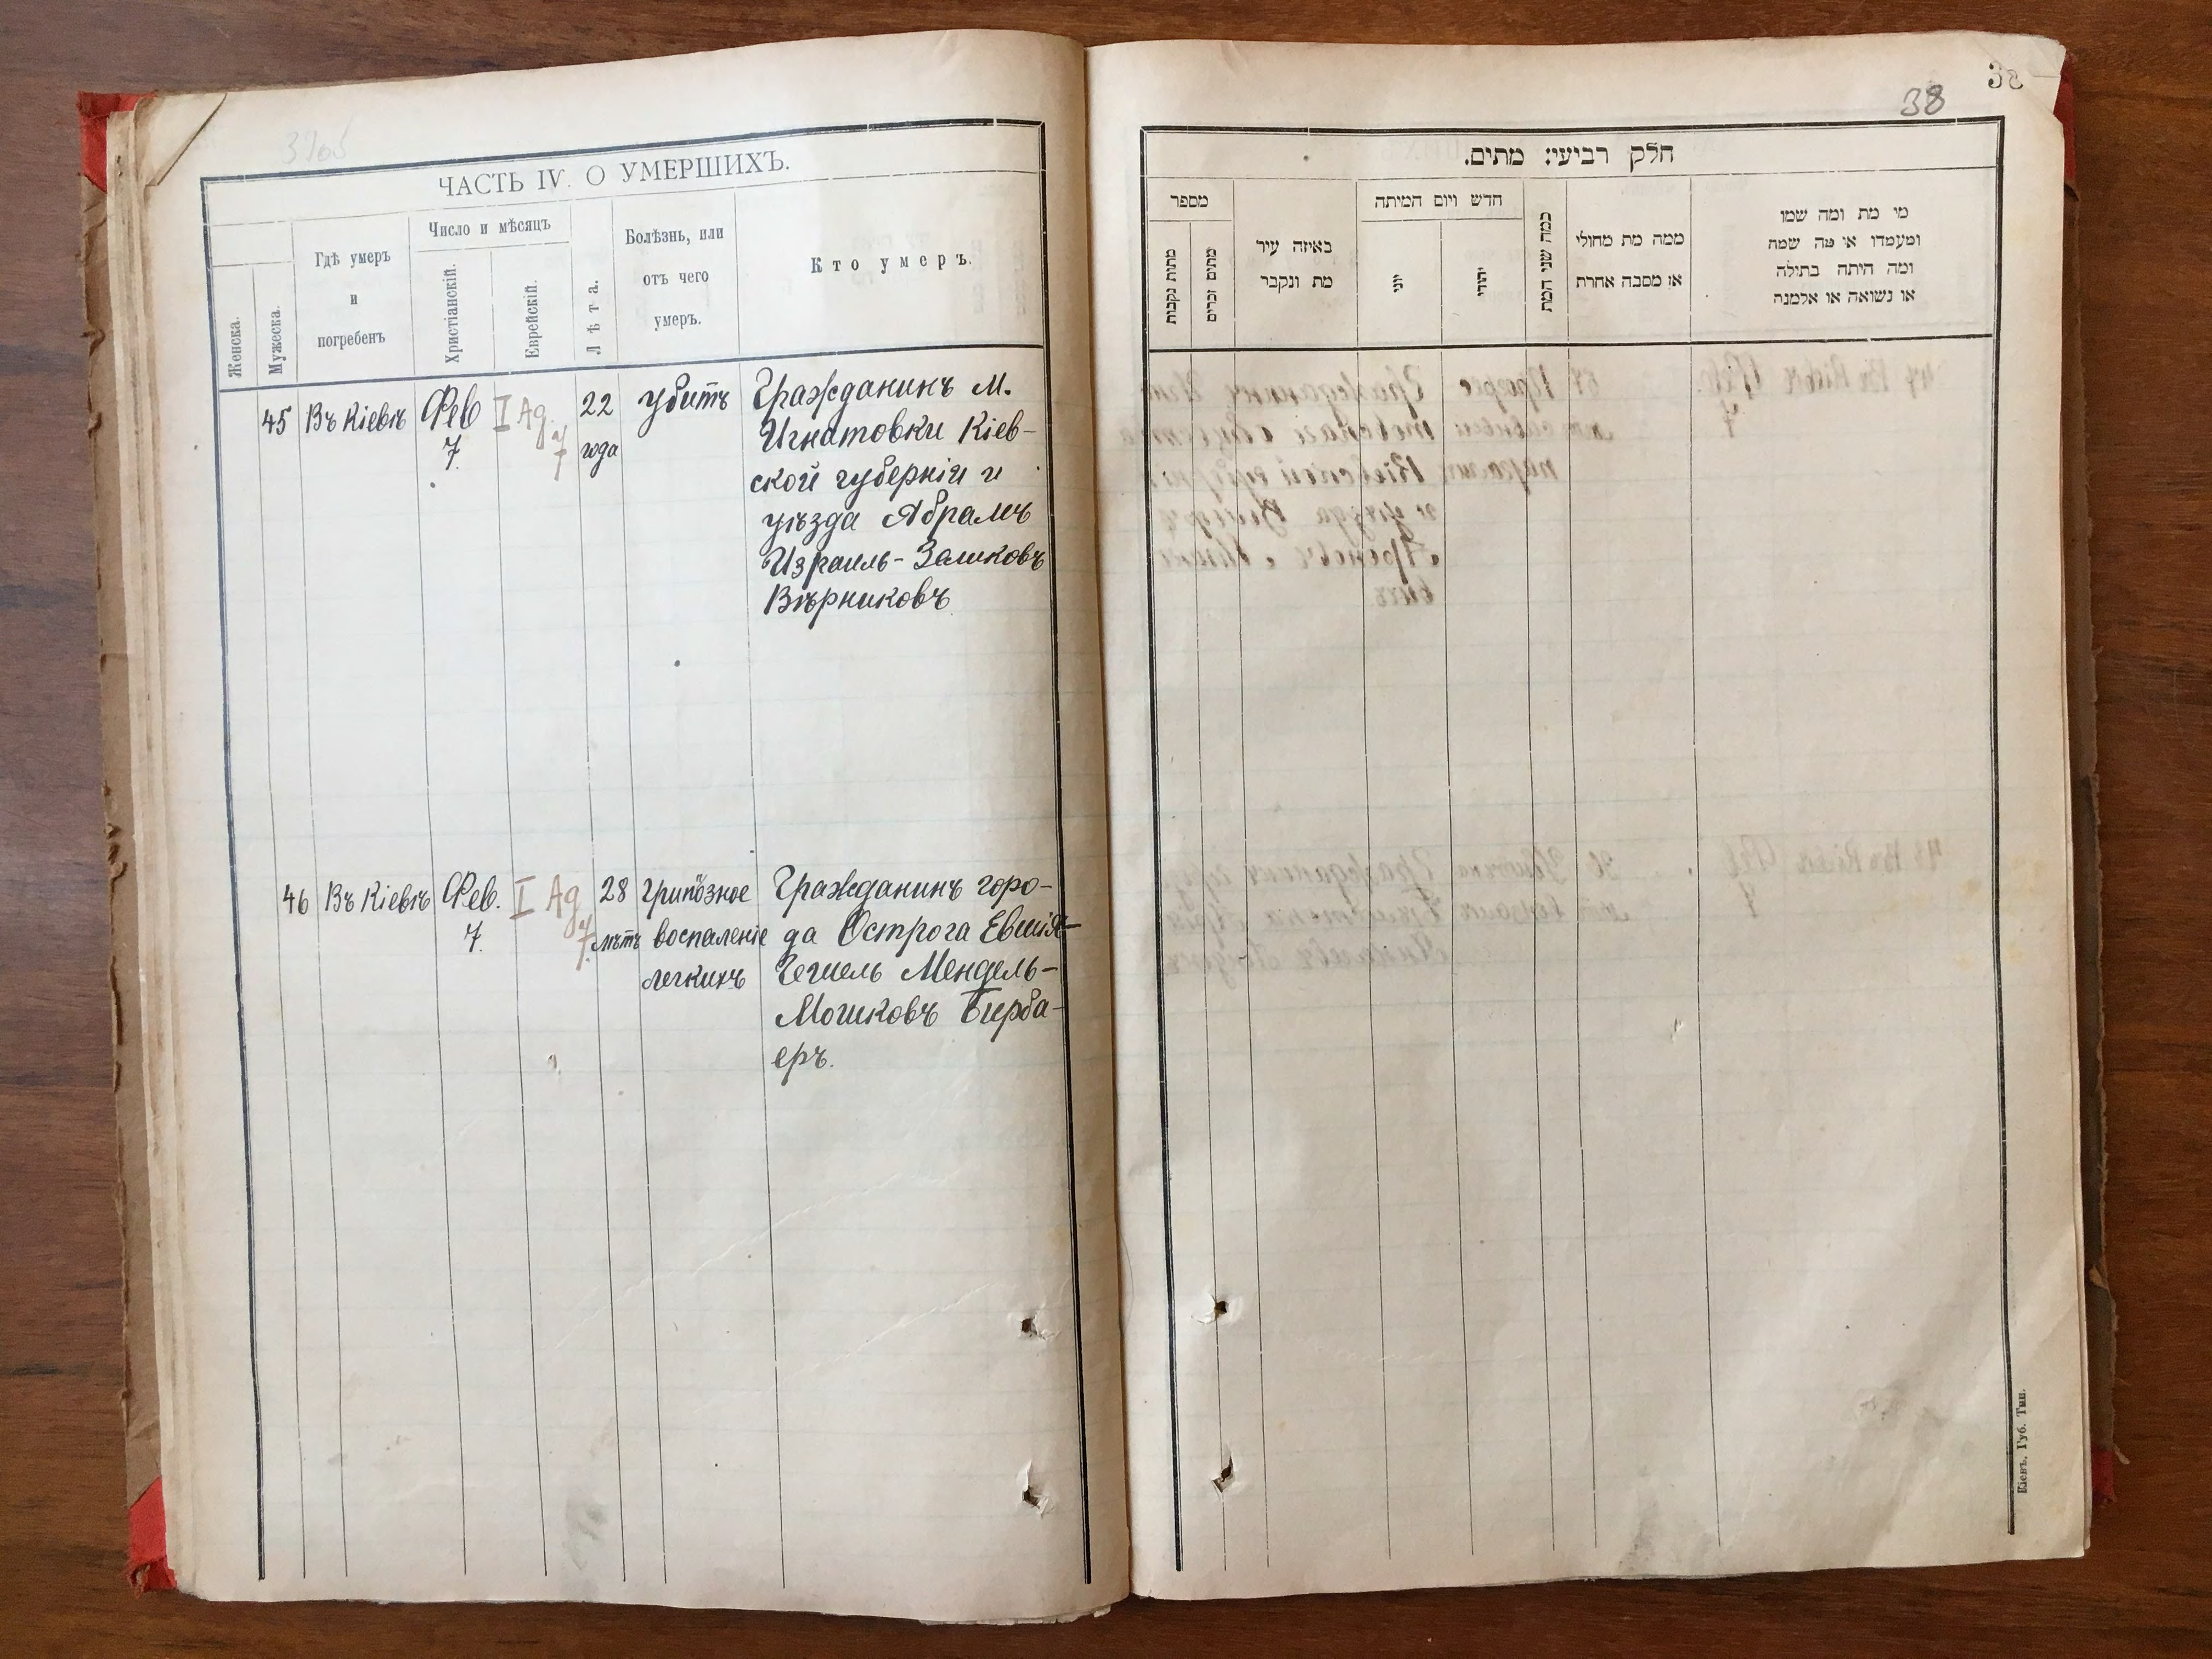 ЧАСТЬ IV. О УМЕРШИХЪ.
Женска.
Мужеска.
Гдѣ умеръ
и
погребенъ
Число и мѣсяцъ
Христіанскій.
Еврейскій.
Лѣта.
Болѣзнь, или
отъ чего
умеръ.
Кто умеръ.
45
Въ Кіевѣ
Фев
7.
I Ад
7
22
года
убитъ
Гражданинъ м.
Игнатовки Кіев-
ской губерніи и
уѣзда Абрамъ
Израиль-Заликовъ
Вѣрниковъ
46
Въ Кіевѣ
Фев.
7.
I Ад
7.
28
лѣтъ
грипозное
воспаленіе
легкихъ
Гражданинъ горо-
да Острога Евшія-
Гешель Мендель-
Мошковъ Бирба-
еръ.
38
38
חלק רביעי: מתים.
מספר
מתות נקבות
מתים זכרים
באיזה עיר
מת ונקבר
חדש ויום המיתה
יוני
יהודי
כמה שני המת
ממה מת מחולי
או מסבה אחרת
מי מת ומה שמו
ומעמדו או מה שמה
ומה היתה בתולה
או נשואה או אלמנה
Кіевъ. Губ. Тип.